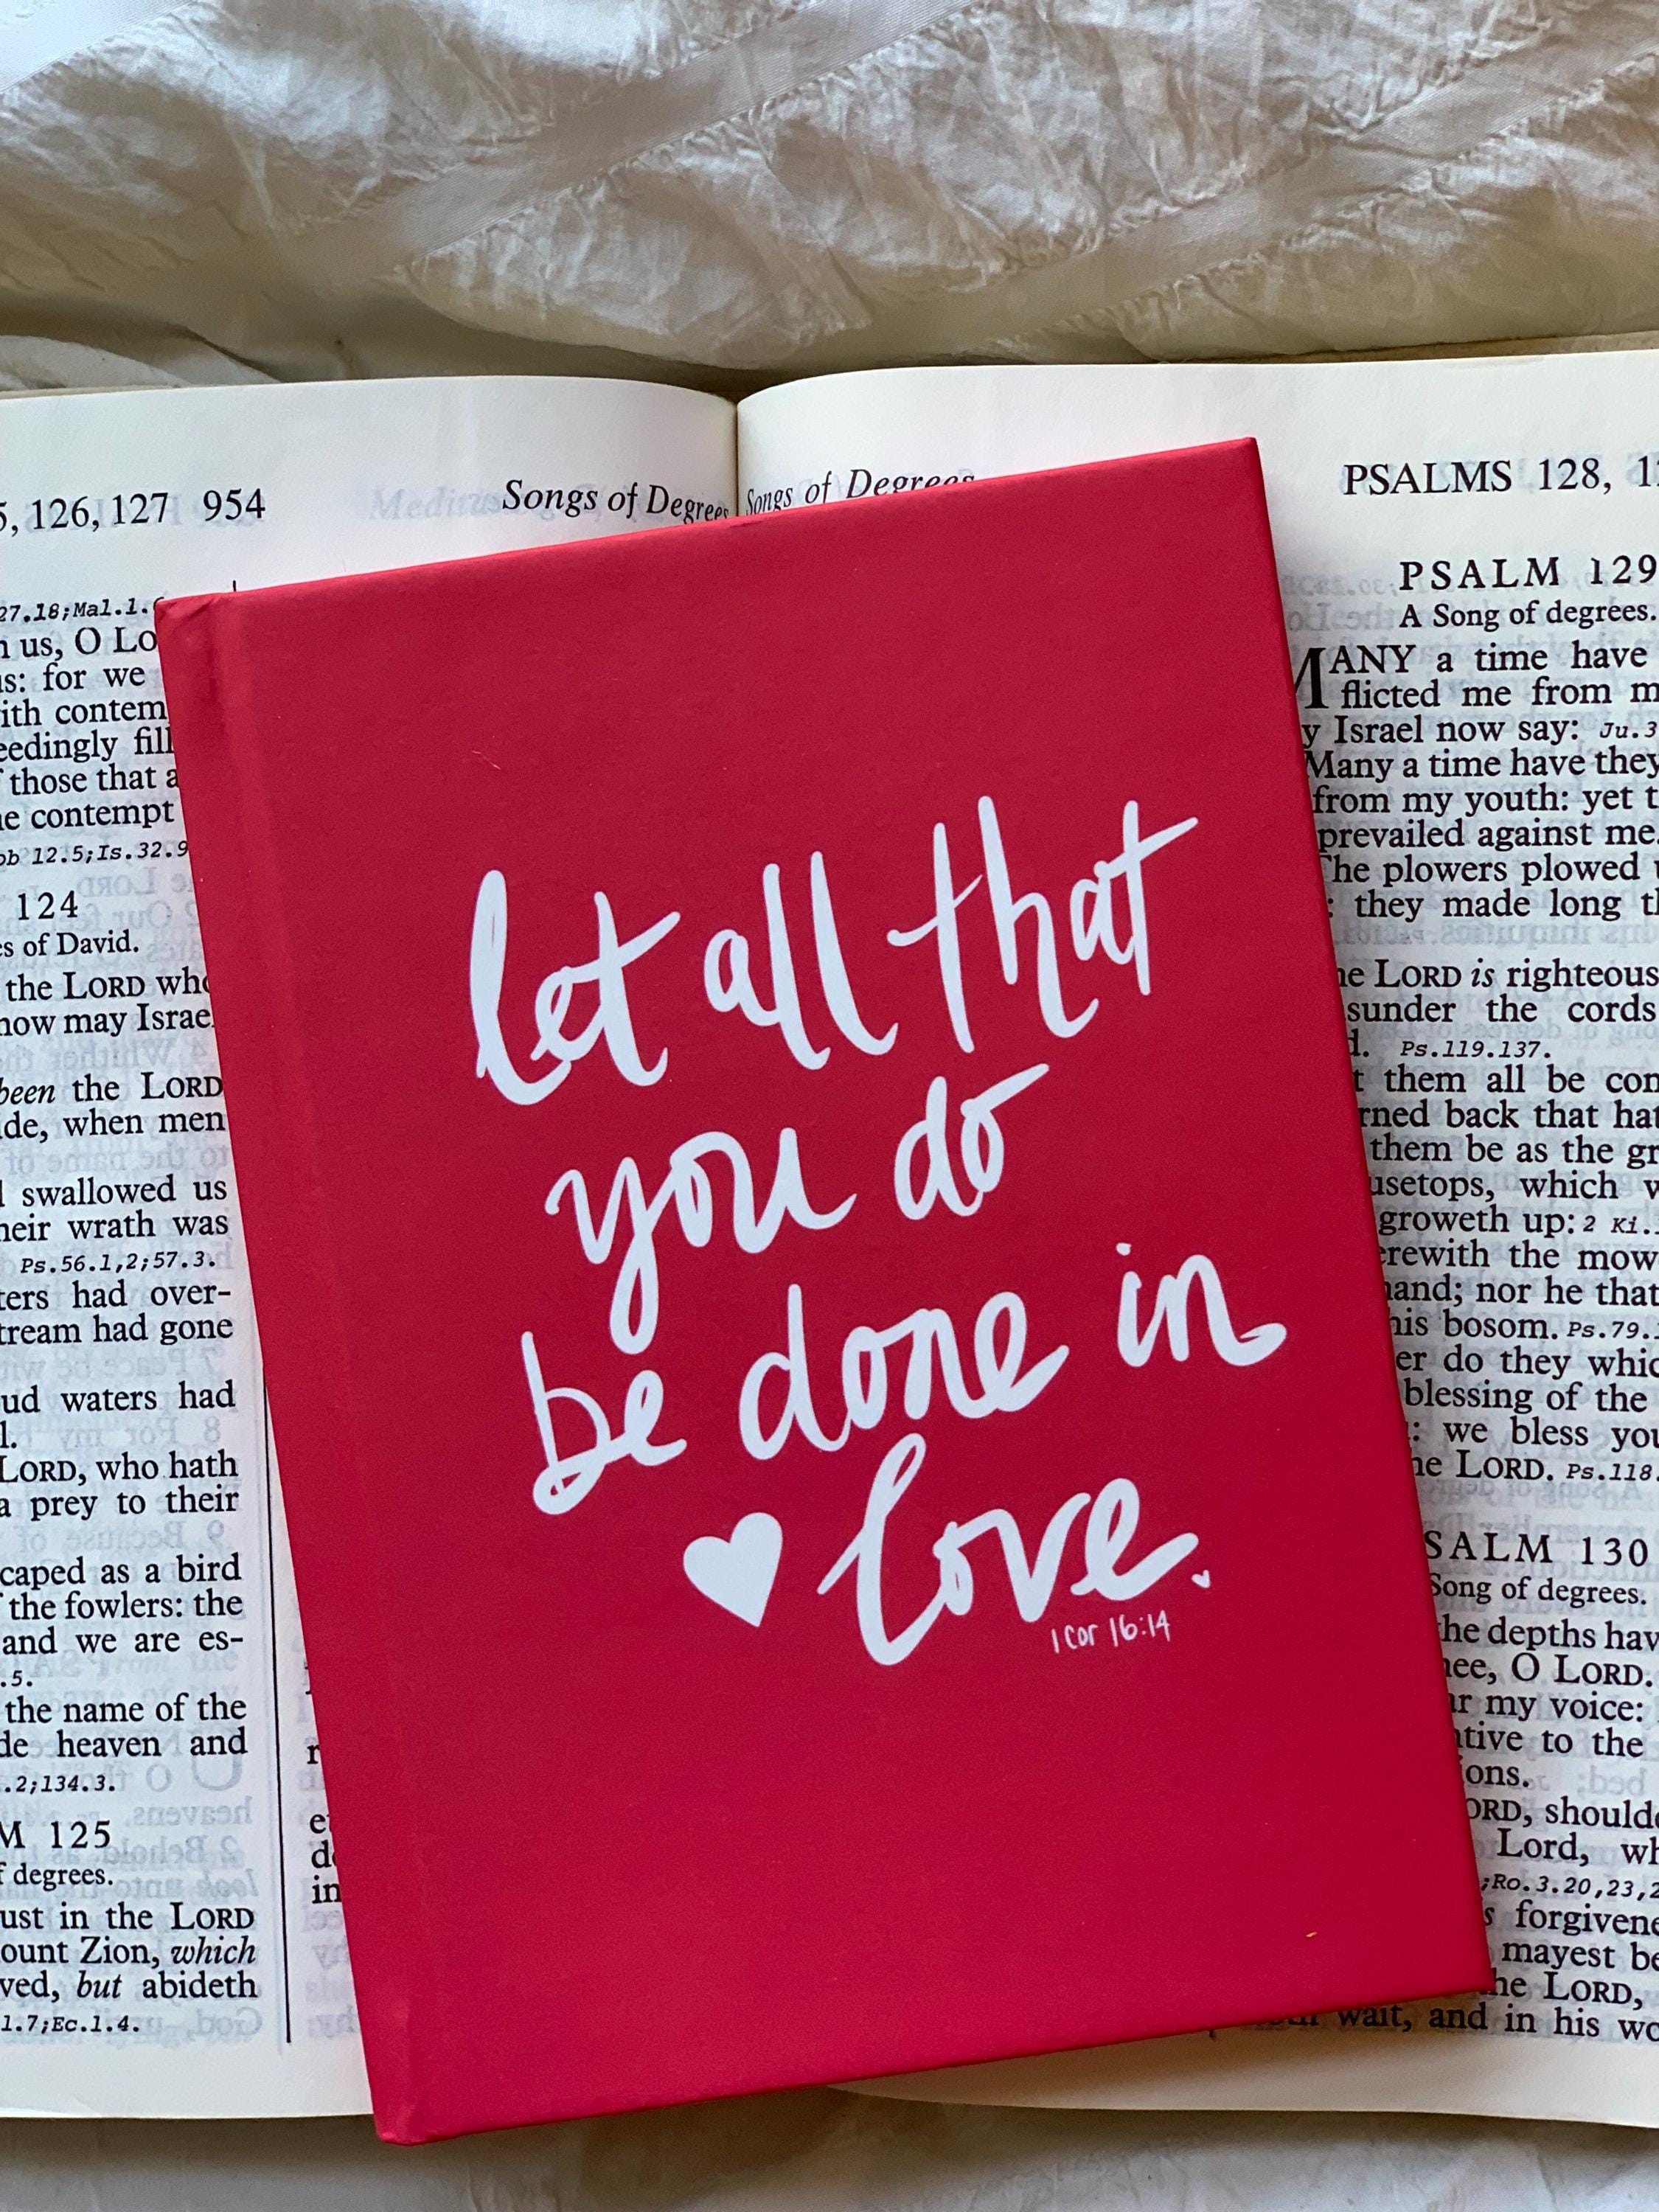 5, 126, 127 954
Songs of Degrees
27.18;Mal.1.
us, O
for we
with contem
eedingly fill
those that a
contempt
12.5;Is.32.9
124
of David.
the LORD who
now may Israel
been the LORD
when men
swallowed us
their wrath was
Ps.56.1,2;57.3.
had over-
stream had gone
waters had
LORD, who hath
a prey to their
caped as a bird
the fowlers: the
and we are es-
.5.
the name of the
heaven and
.2;134.3.
125
degrees.
in the LORD
Zion, which
but abideth
1.7;Ec.1.4.
let all that
you do
be done in
love.
1 Cor 16:14
Songs of Degrees
PSALMS 128, 1
PSALM 129
A Song of degrees.
MANY a time have
flicted me from m
Israel now say: Ju.3
Many a time have they
from my youth: yet t
prevailed against me.
The plowers plowed
: they made long th
LORD is righteous
sunder the cords
Ps.119.137.
them all be con
rned back that hat
them be as the gr
usetops, which w
groweth up: 2 Ki.
erewith the mow
hand; nor he that
his bosom. Ps.79.
do they whic
blessing of the
: we bless you
LORD. Ps.118.
PSALM 130
Song of degrees.
the depths hav
thee, O LORD.
my voice:
tive to the
ions.
LORD, should
Lord, wh
;Ro.3.20,23,2
forgivene
mayest be
the LORD,
wait, and in his wo